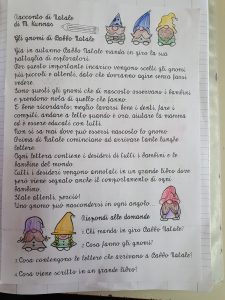 Racconto di Natale
di M. Kunnas
Gli gnomi di Babbo Natale
Già in autunno Babbo Natale manda in giro la sua
pattuglia di esploratori.
Per questo importante incarico vengono scelti gli gnomi
più piccoli e attenti, dato che dovranno agire senza farsi
vedere.
Sono questi gli gnomi che di nascosto osservano i bambini
e prendono nota di quello che fanno.
È bene ricordarlo: meglio lavarsi bene i denti, fare i
compiti, andare a letto quando è ora, aiutare la mamma
ed essere educati con tutti.
Non si sa mai dove può essersi nascosto lo gnomo.
Prima di Natale cominciano ad arrivare tante lunghe
lettere.
Ogni lettera contiene i desideri di tutti i bambini e le
bambine del mondo.
Tutti i desideri vengono annotati in un grande libro dove
però viene segnato anche il comportamento di ogni
bambino.
State attenti, perciò!
Uno gnomo può nascondersi in ogni angolo...
Rispondi alle domande
1 Chi manda in giro Babbo Natale?
2 Cosa fanno gli gnomi?
3 Cosa contengono le lettere che arrivano a Babbo Natale?
4 Cosa viene scritto in un grande libro?